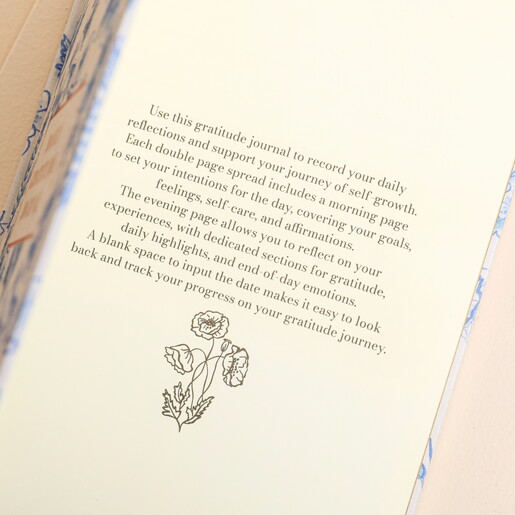 Use this gratitude journal to record your daily
reflections and support your journey of self-growth.
Each double page spread includes a morning page
to set your intentions for the day, covering your goals,
feelings, self-care, and affirmations.
The evening page allows you to reflect on your
experiences, with dedicated sections for gratitude,
daily highlights, and end-of-day emotions.
A blank space to input the date makes it easy to look
back and track your progress on your gratitude journey.